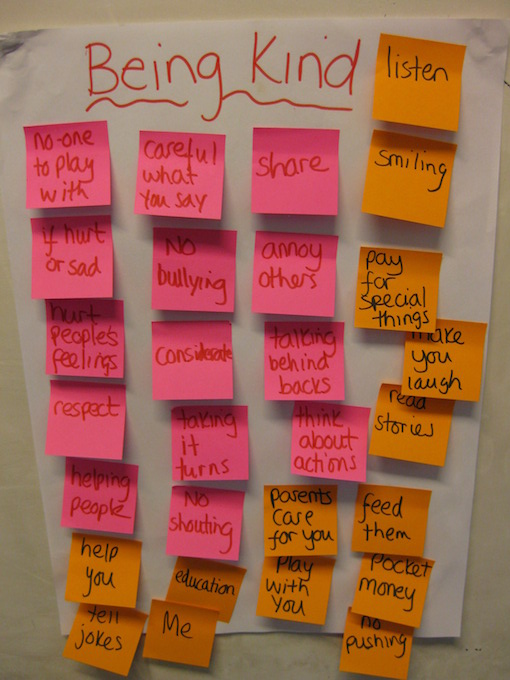 Being Kind
listen
no-one
to play
with
careful
what
you say
share
smiling
if hurt
or sad
No
bullying
annoy
others
pay
for
special
things
hurt
people's
feelings
considerate
talking
behind
backs
make
you
laugh
respect
taking
it
turns
think
about
actions
read
stories
helping
people
No
shouting
parents
care
for you
feed
them
help
you
education
Play
with
you
pocket
money
tell
jokes
Me
no
pushing